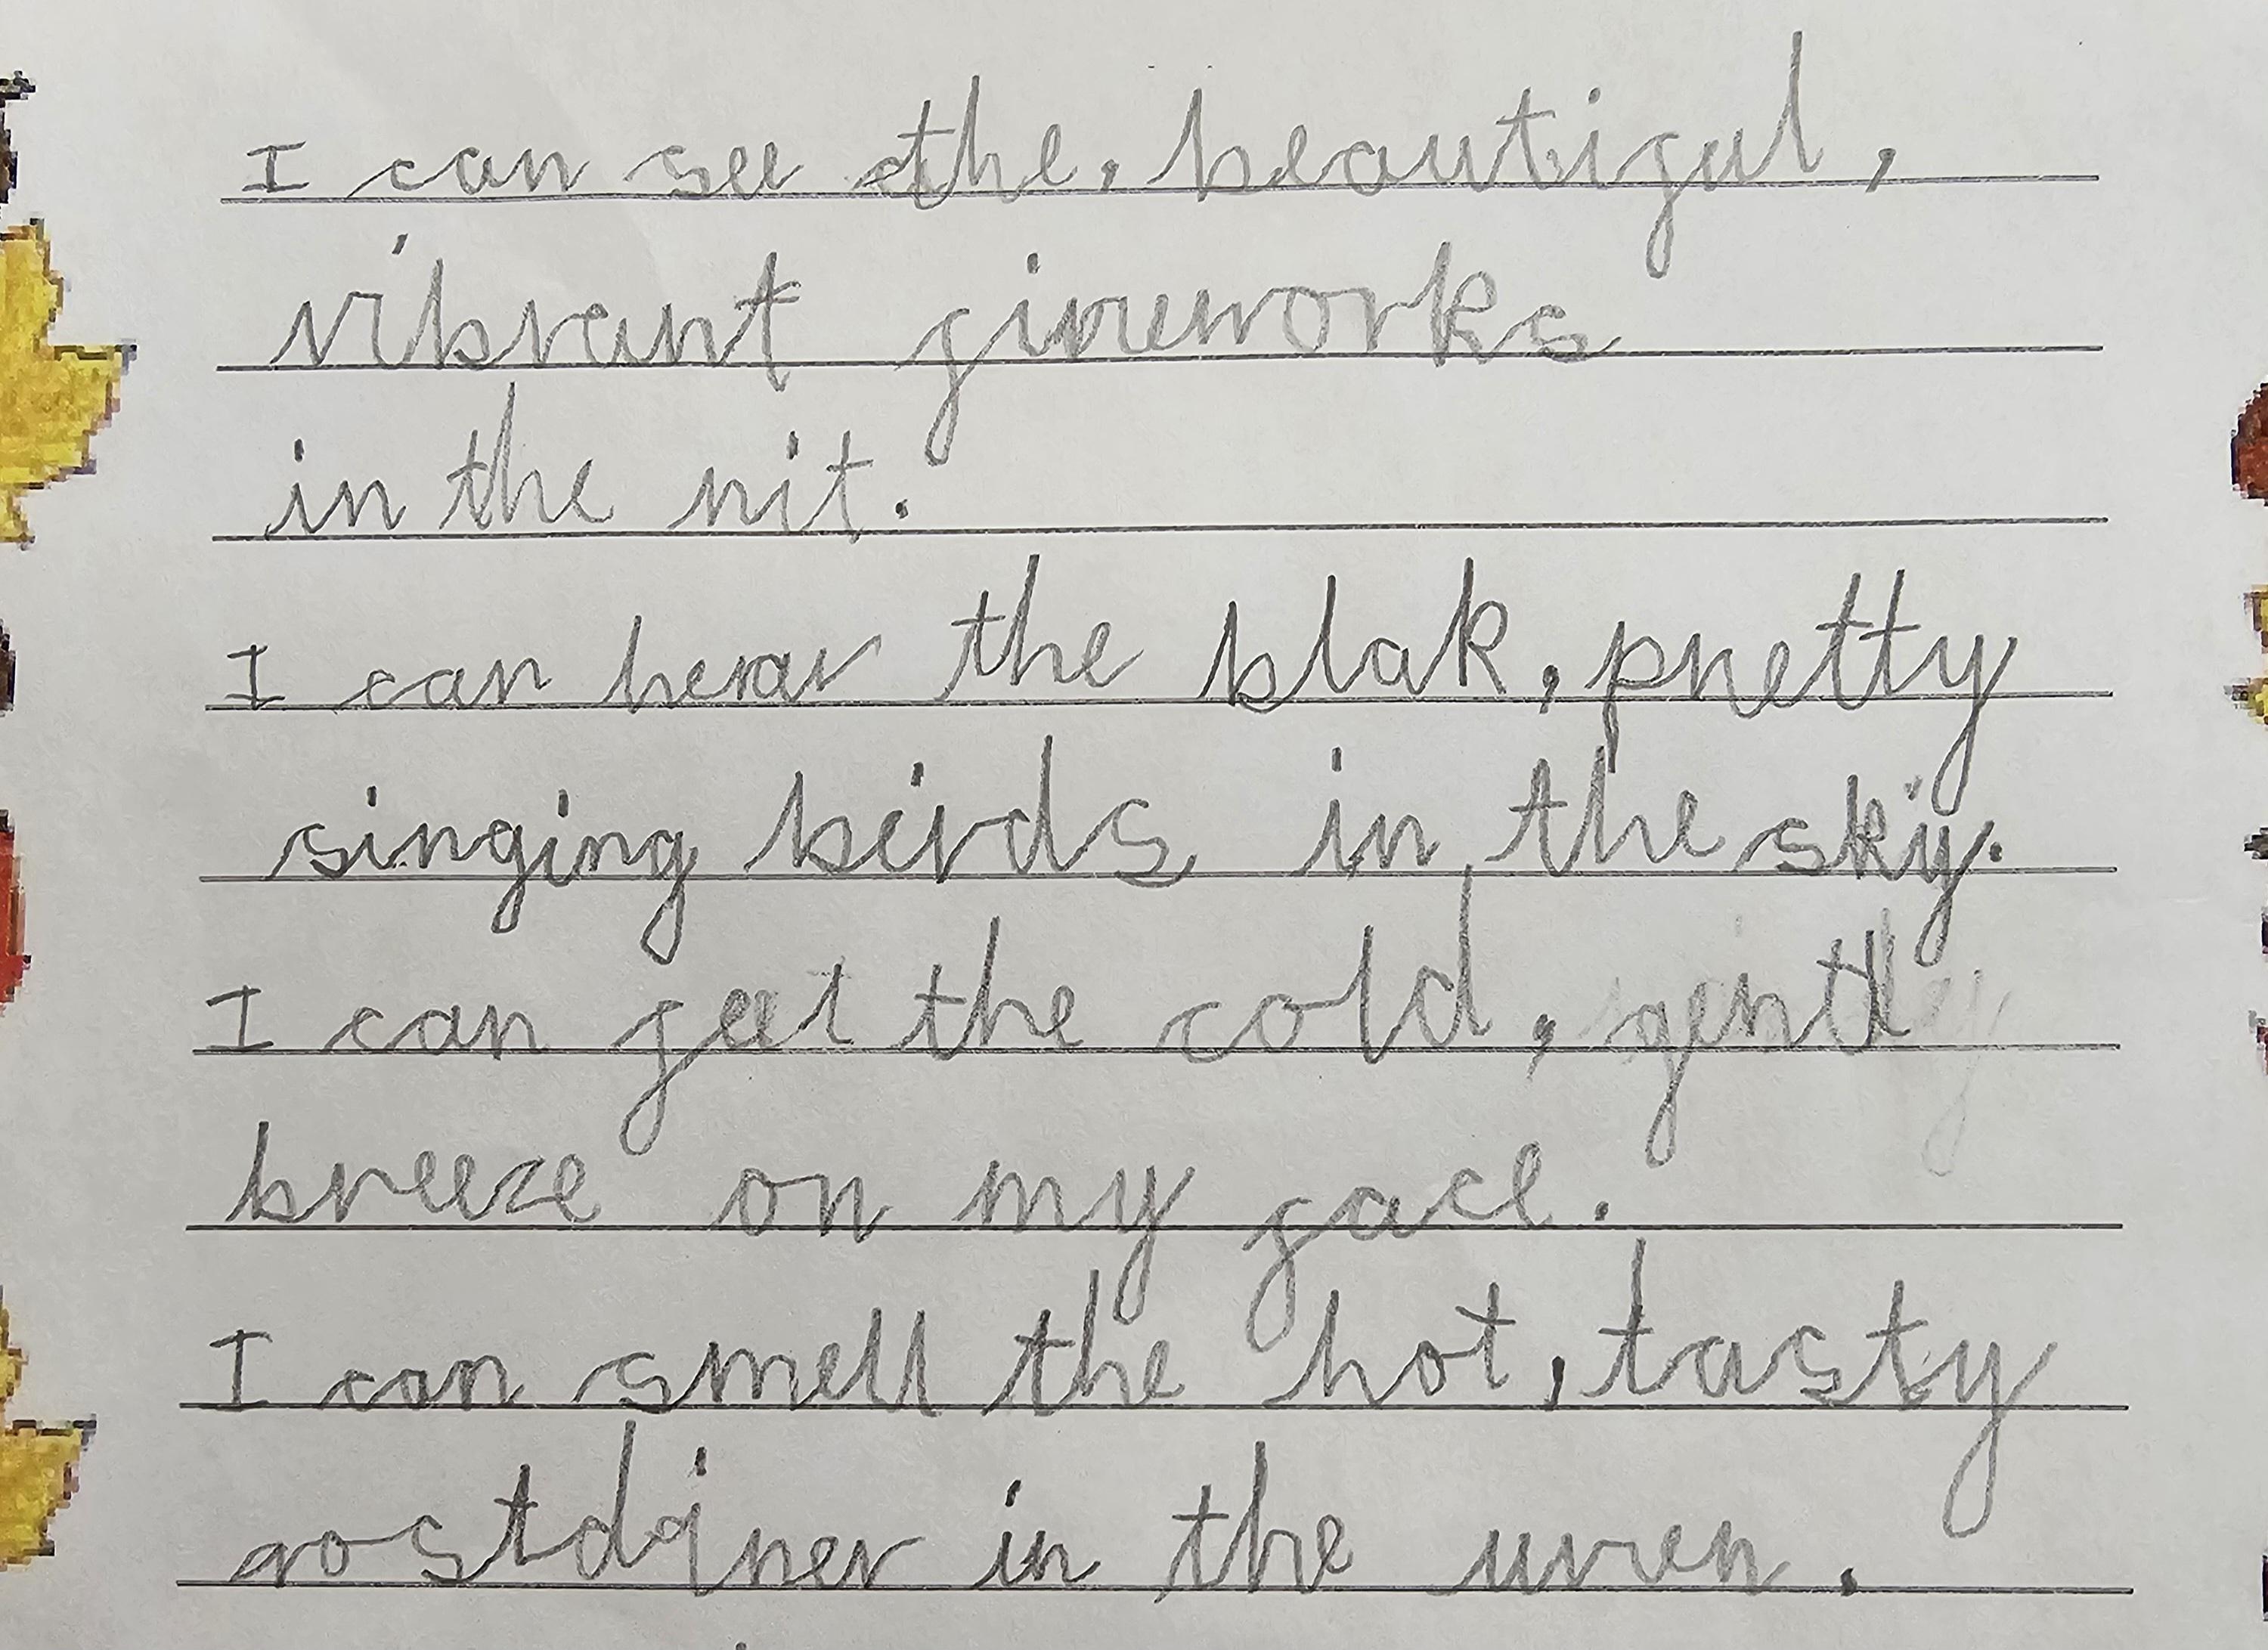 I can see the, beautiful,
vibrant fireworks
in the nit.
I can hear the blak, pretty
singing birds in the sky.
I can feel the cold, gentl
breeze on my face.
I can smell the hot, tasty
rostdiner in the uven.